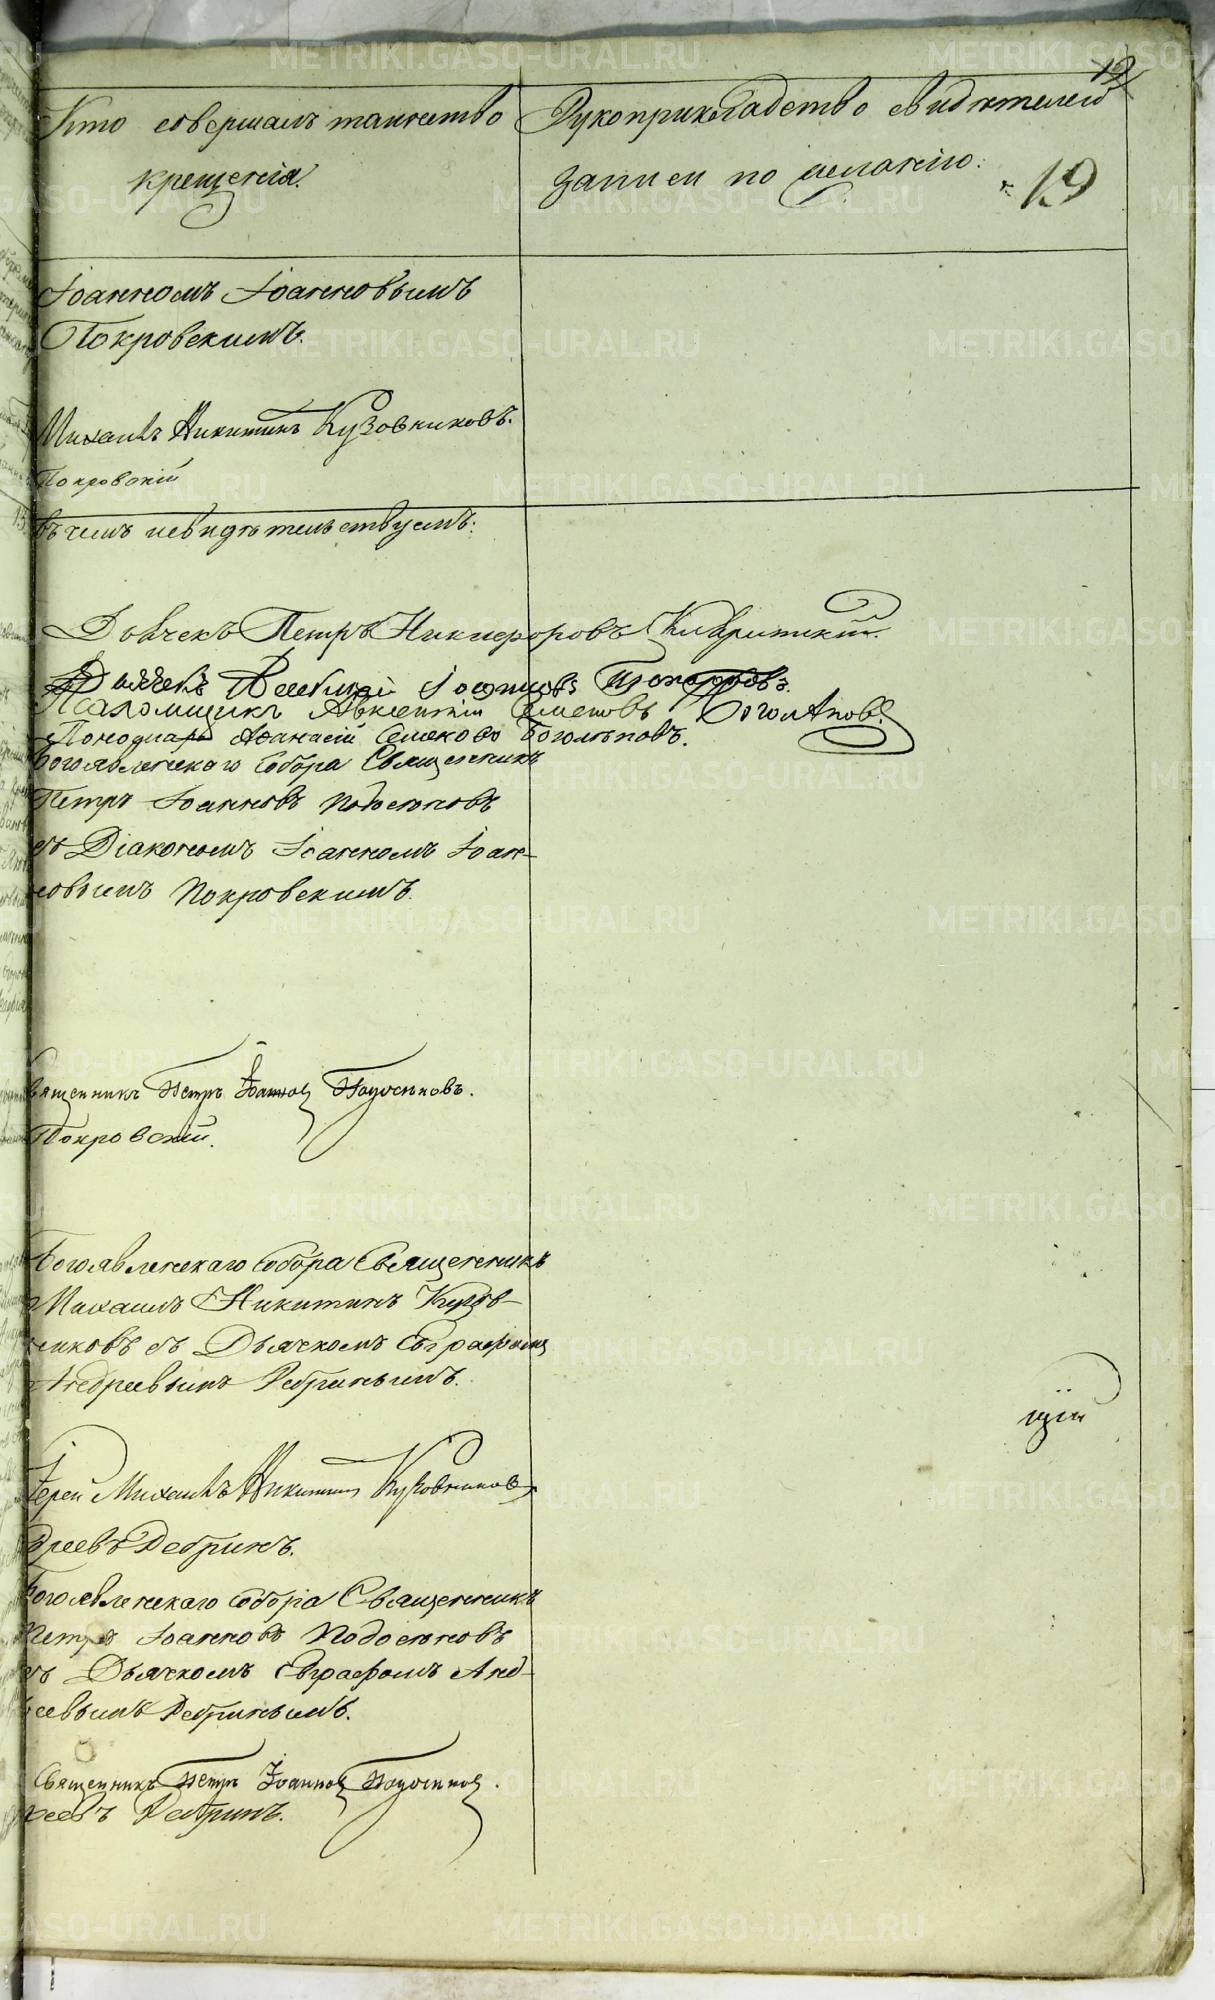 19
Кто совершалъ таинство
крещенія.
Рукоприкладство свидѣтелей
записи по желанію.
19
Іоанномъ Іоанновымъ
Покровскимъ.
Михаилъ Никитинъ Кузовниковъ.
Покровскій
въ чемъ и свидѣтельствуемъ:
Дьячекъ Петръ Никифоровъ
Дьячекъ Алексѣй
Псаломщикъ Авксентій Семеновъ Боголѣповъ.
Пономарь Аѳанасій Семеновъ Боголѣповъ.
Богоявленскаго Собора Священникъ
Петръ Іоанновъ Подосеновъ
съ Діакономъ Іоанномъ Іоан-
новымъ Покровскимъ.
Священникъ Петръ Іоанновъ Подосеновъ.
Покровскій.
Богоявленскаго Собора Священникъ
Михаилъ Никитинъ Кузов-
никовъ съ Дьячкомъ Евграфомъ
Андреевымъ Ребринымъ.
щій
Іерей Михаилъ Никитинъ Кузовниковъ
дреевъ Ребринъ.
Богоявленскаго Собора Священникъ
Петръ Іоанновъ Подосеновъ
съ Дьячкомъ Евграфомъ Анд-
реевымъ Ребринымъ.
Священникъ Петръ Іоанновъ Подосеновъ.
реевъ Ребринъ.
METRIKI.GASO-URAL.RU